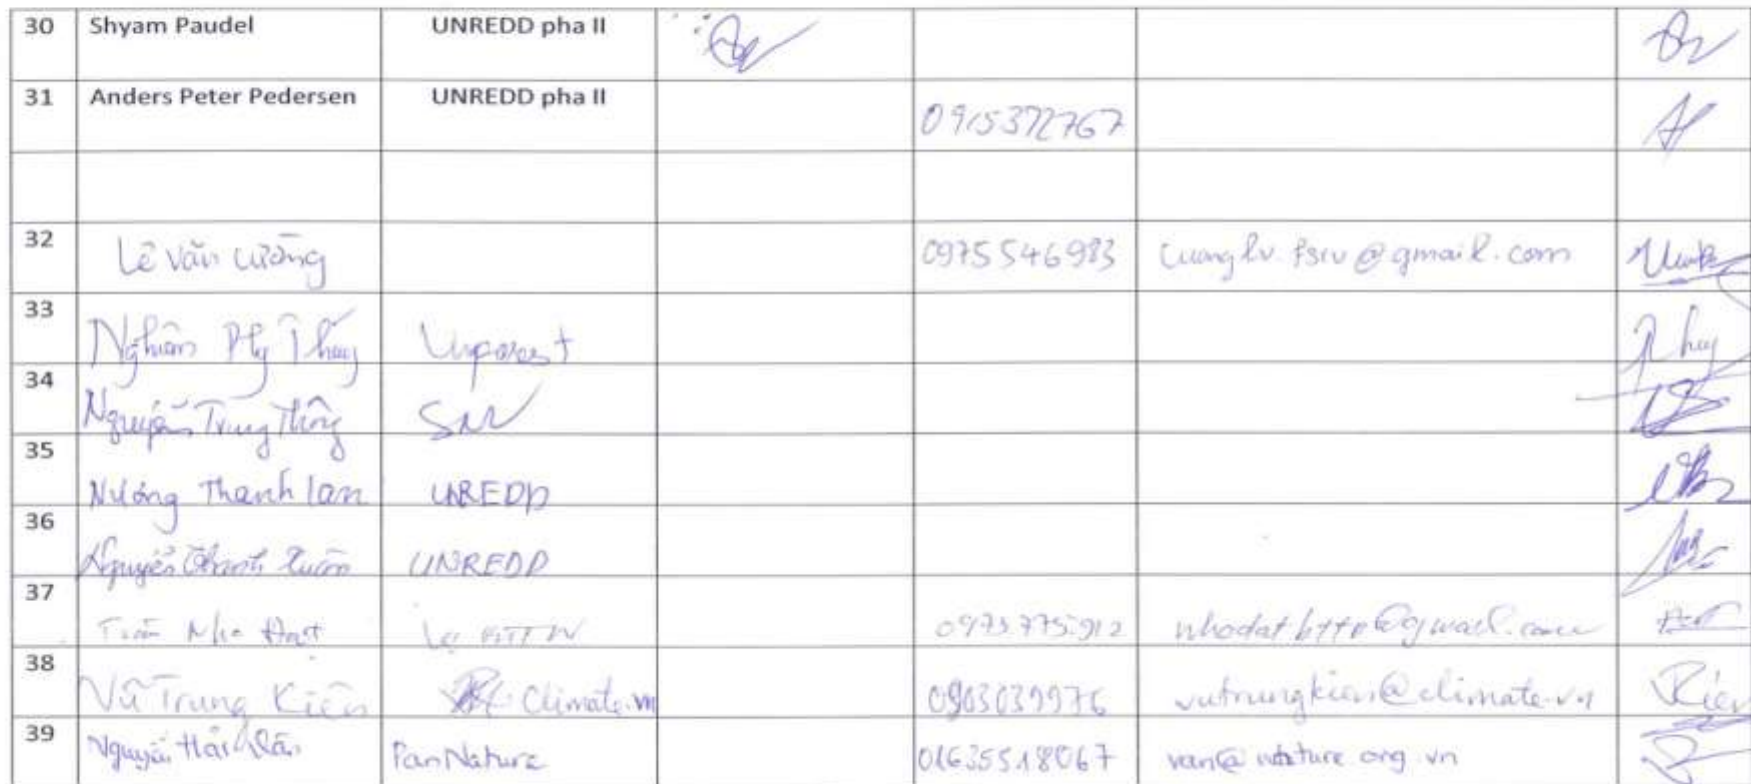 30 Shyam Paudel UNREDD pha II
31 Anders Peter Pedersen UNREDD pha II 0915372767
32 Lê Văn Cường 0975546983 cuonglv.fsiv@gmail.com
33 Nghiêm Thúy
34 Nguyễn Trung Thông SNV
35 Nương Thanh Lan UNREDD
36 Nguyễn Thanh Xuân UNREDD
37 Trần Nho Đạt 0975.775.912 nhodatbttn@gmail.com
38 Vũ Trung Kiên Climate.vn 0903039976 vutrungkien@climate.vn Kiên
39 Nguyễn Hải Vân PanNature 01635518067 van@nature.org.vn